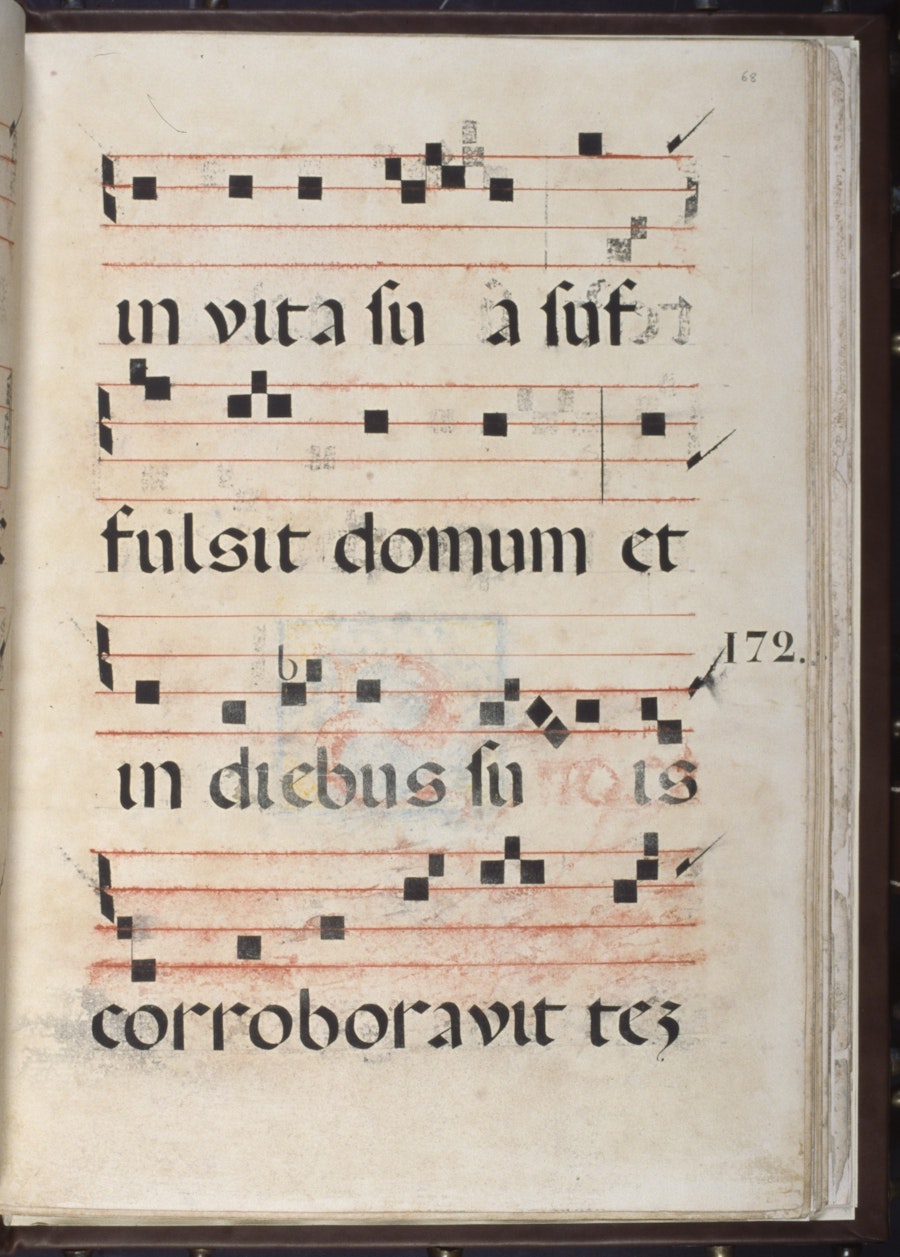 68
in vita su a suf
fulsit domum et
172.
in diebus su is
corroboravit tez